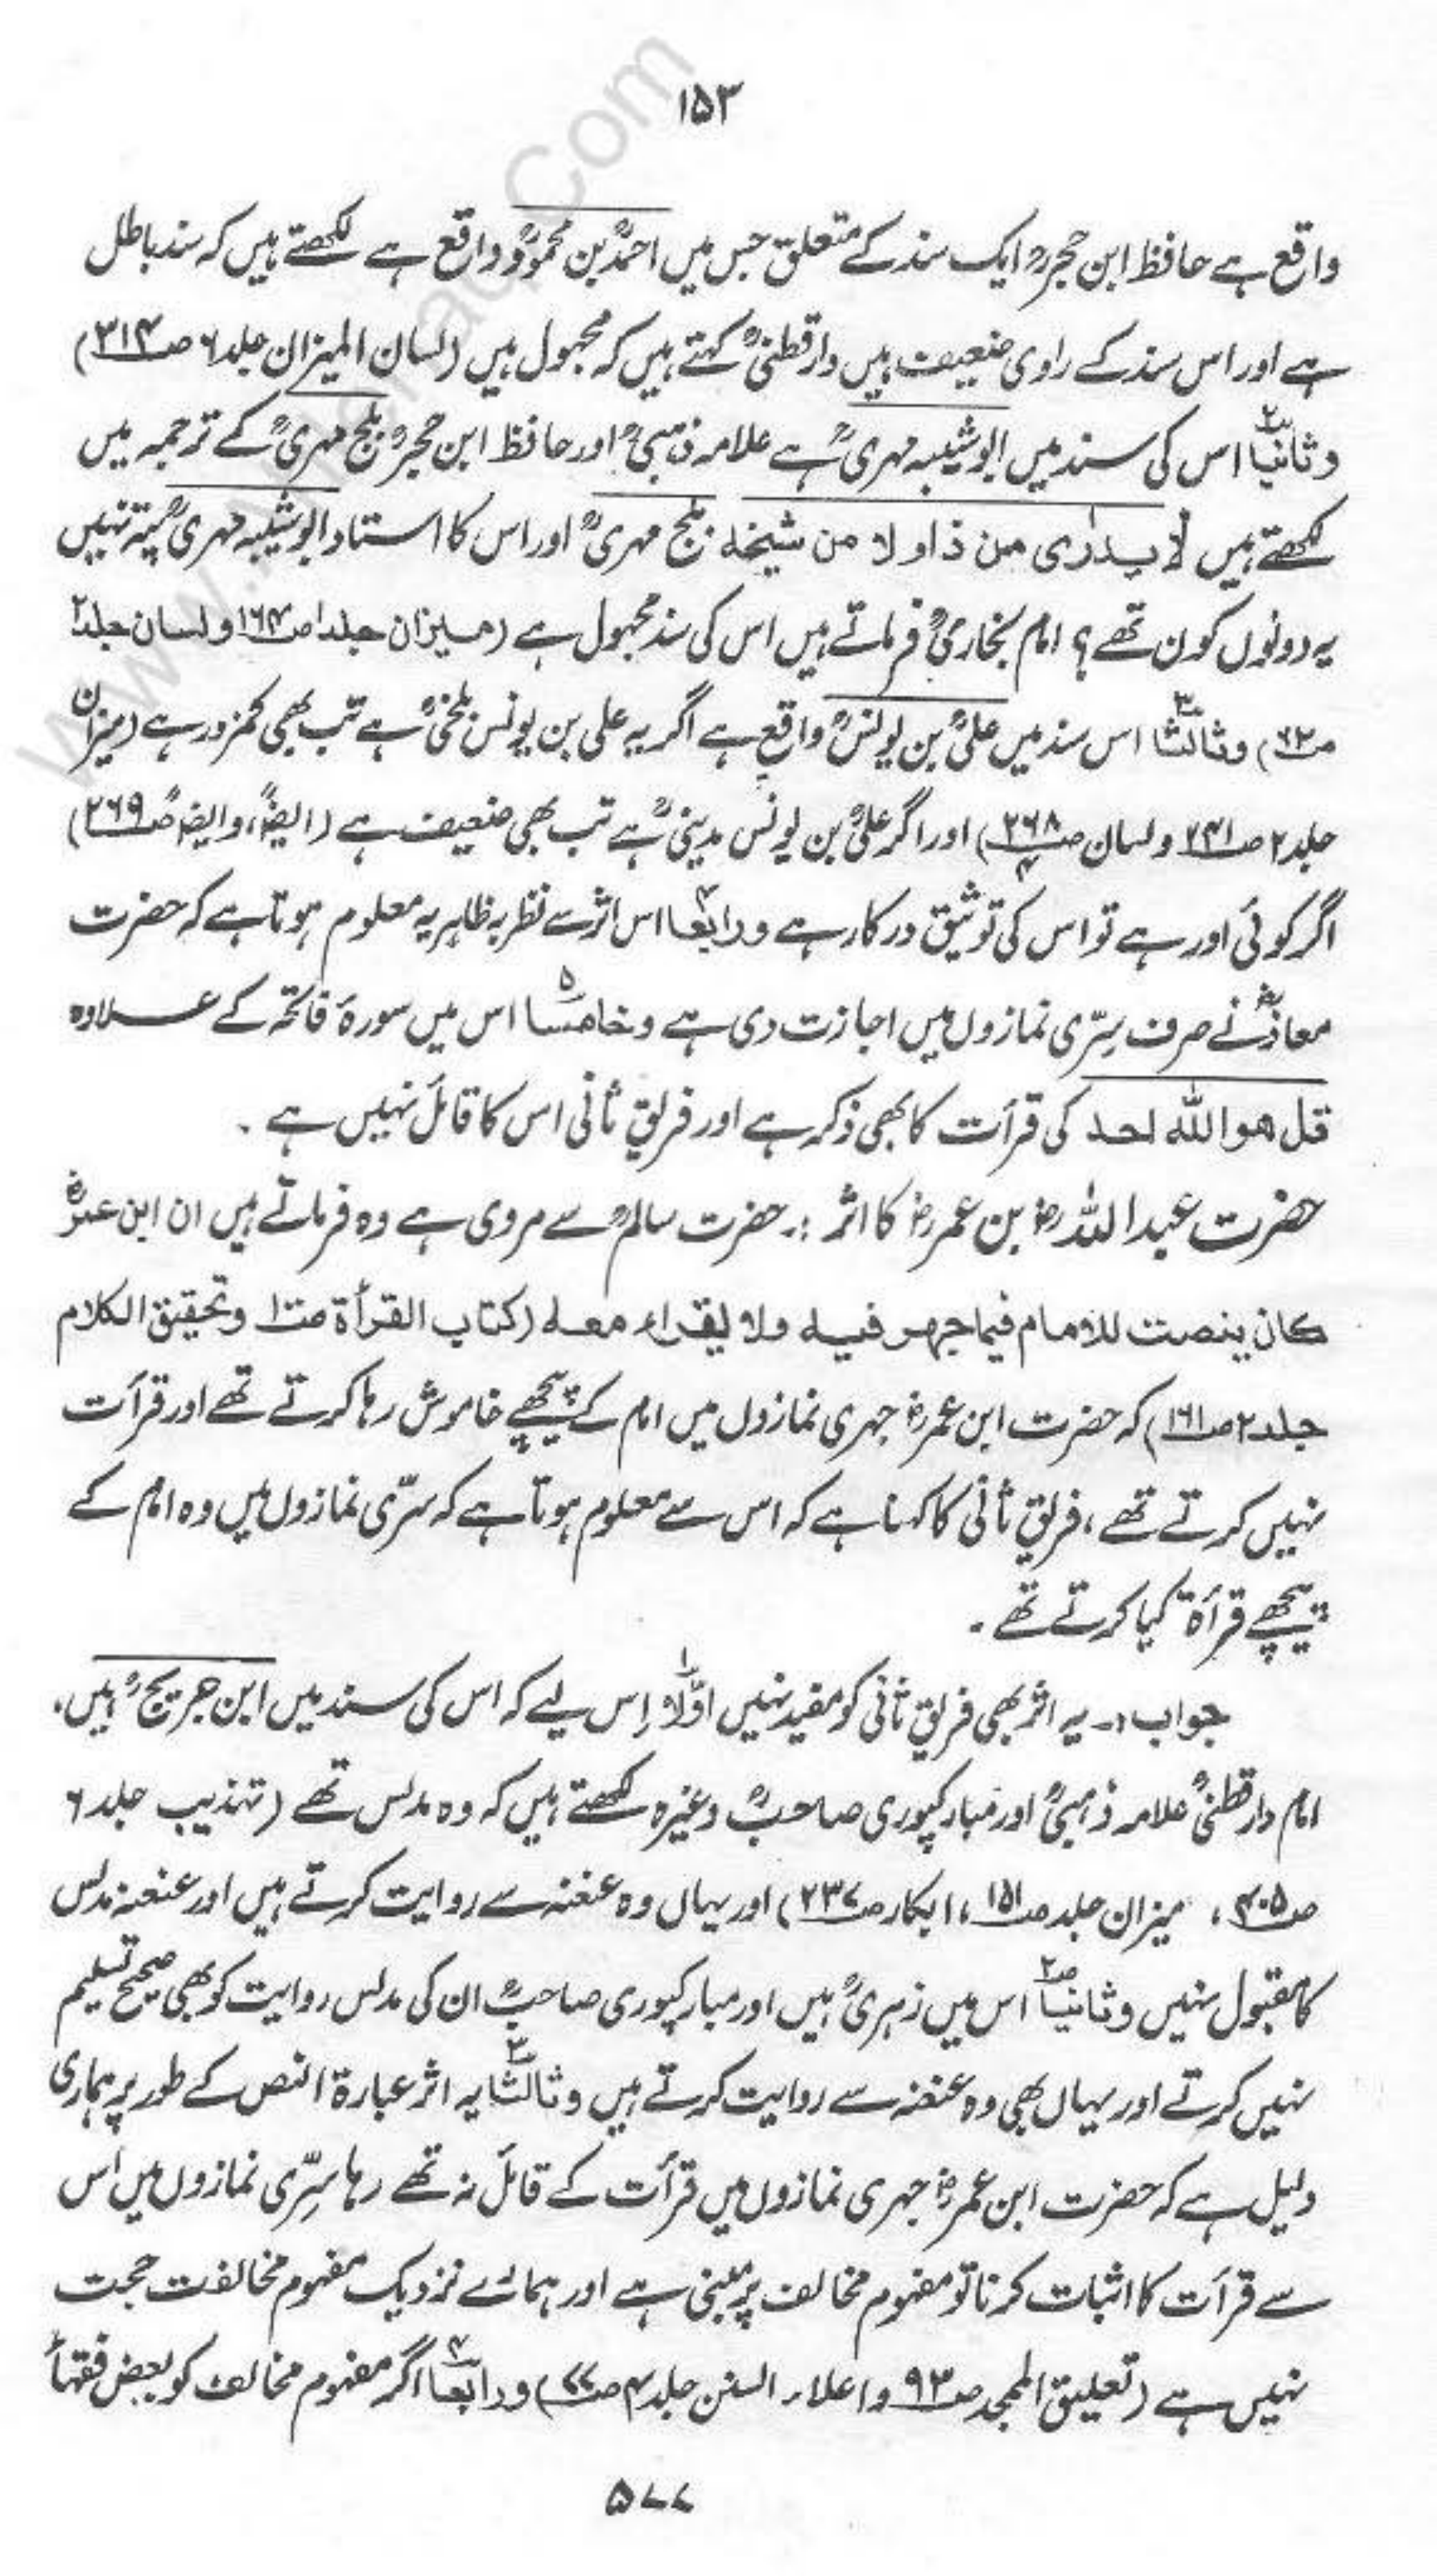 ۱۵۳
واقع ہے حافظ ابن حجرؒ ایک سند کے متعلق جس میں احمدؒ بن محمودؒ واقع ہے لکھتے ہیں کہ سند باطل
ہے اور اس سند کے راوی ضعیف ہیں دارقطنیؒ کہتے ہیں کہ مجہول ہیں (لسان المیزان جلد ۶ ص۳۱۴)
وثانیاً اس کی سند میں ابو شیبہ مہریؒ ہے علامہ ذہبیؒ اور حافظ ابن حجرؒ بلج مہریؒ کے ترجمہ میں
لکھتے ہیں لا یدرٰی من ذا ولا من شیخہ بلج مہریؒ اور اس کا استاد ابو شیبہ مہریؒ پتہ نہیں
یہ دونوں کون تھے؟ امام بخاریؒ فرماتے ہیں اس کی سند مجہول ہے (میزان جلد ۱ ص۱۶۴ ولسان جلد ۲
ص۶۲) وثالثاً اس سند میں علیؒ بن یونسؒ واقع ہے اگر یہ علی بن یونس بلخیؒ ہے تب بھی کمزور ہے (میزان
جلد ۲ ص۲۴۱ ولسان ص۲۶۸ ۴) اور اگر علیؒ بن یونس مدینیؒ ہے تب بھی ضعیف ہے (ایضاً، وایضاً ص۲۶۹)
اگر کوئی اور ہے تو اس کی توثیق درکار ہے ورابعاً اس اثر سے نظر بہ ظاہر یہ معلوم ہوتا ہے کہ حضرت
معاذؓ نے صرف سِرّی نمازوں میں اجازت دی ہے وخامساً اس میں سورۂ فاتحہ کے علاوہ
قل ھو اللّٰہ احد کی قرأت کا بھی ذکر ہے اور فریقِ ثانی اس کا قائل نہیں ہے ۔
حضرت عبداللّٰہؓ بن عمرؓ کا اثر :۔ حضرت سالمؒ سے مروی ہے وہ فرماتے ہیں ان ابن عمرؓ
کان ینصت للامام فیما جھر فیہ ولا یقراء معہ (کتاب القرأۃ ص۱۰۰ وتحقیق الکلام
جلد ۲ ص۱۶۱) کہ حضرت ابن عمرؓ جہری نمازوں میں امام کے پیچھے خاموش رہا کرتے تھے اور قرأت
نہیں کرتے تھے، فریقِ ثانی کا کہنا ہے کہ اس سے معلوم ہوتا ہے کہ سرّی نمازوں میں وہ امام کے
پیچھے قرأۃ کیا کرتے تھے ۔
جواب :۔ یہ اثر بھی فریقِ ثانی کو مفید نہیں اوّلاً اِس لیے کہ اس کی سند میں ابن جریجؒ ہیں۔
امام دارقطنیؒ علامہ ذہبیؒ اور مبارکپوری صاحبؒ وغیرہ لکھتے ہیں کہ وہ مدلس تھے (تہذیب جلد ۶
ص۴۰۵، میزان جلد ص۱۵۱، ابکار ص۲۳۷) اور یہاں وہ عنعنہ سے روایت کرتے ہیں اور عنعنہ مدلس
کا مقبول نہیں وثانیاً اس میں زہریؒ ہیں اور مبارکپوری صاحبؒ ان کی مدلس روایت کو بھی صحیح تسلیم
نہیں کرتے اور یہاں بھی وہ عنعنہ سے روایت کرتے ہیں وثالثاً یہ اثر عبارۃ النص کے طور پر ہماری
دلیل ہے کہ حضرت ابن عمرؓ جہری نمازوں میں قرأت کے قائل نہ تھے رہا سِرّی نمازوں میں اس
سے قرأت کا اثبات کرنا تو مفہوم مخالف پر مبنی ہے اور ہمارے نزدیک مفہوم مخالفت حجت
نہیں ہے (تعلیق الممجد ص۹۳ واعلاء السنن جلد ۴ ص۷۷) ورابعاً اگر مفہوم مخالف کو بعض فقہاؒ
۵۷۷